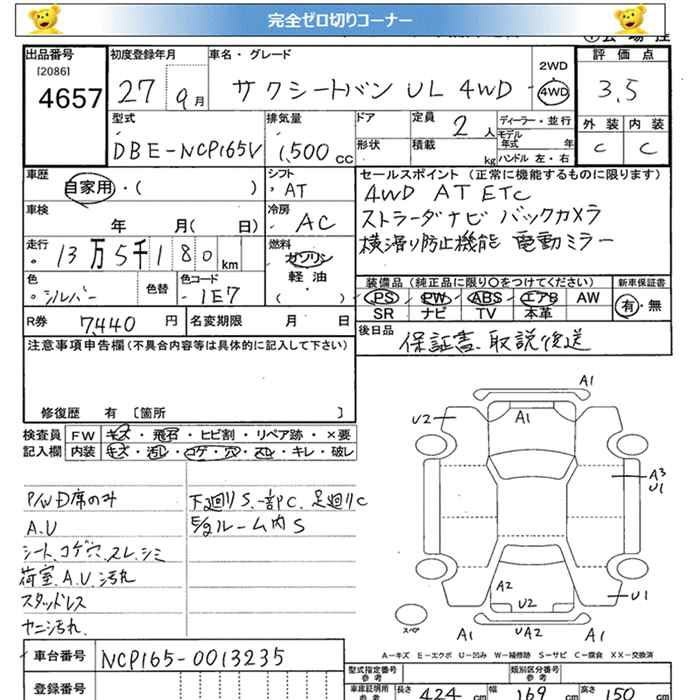 完全ゼロ切りコーナー
出品番号 初度登録年月 車名・グレード 2WD 評価点
[2086]
4657 27 9月 サクシードバン UL 4WD 4WD 3.5
型式 排気量 ドア 定員 2人 ディーラー・並行 外装 内装
モデル年式 年
DBE-NCP165V 1,500cc 形状 積載 kg ハンドル 左・右 C C
車歴 シフト セールスポイント(正常に機能するものに限ります)
自家用・( ) AT 4WD AT ETC
車検 冷房 ストラーダナビ バックカメラ
年 月( 日) AC 横滑り防止機能 電動ミラー
走行 燃料
13万5千180km ガソリン
軽油
色 色替 色コード 装備品(純正品に限り○をつけてください) 新車保証書
シルバー 1E7 ( ) PS PW ABS エアB AW 有・無
SR ナビ TV 本革
R券 7,440円 名変期限 月 日 後日品
注意事項申告欄(不具合内容等は具体的に記入して下さい) 保証書、取説後送
修復歴 有 〔箇所 〕
検査員 FW キズ・飛石・ヒビ割・リペア跡・×要
記入欄 内装 キズ・汚レ・コゲ・穴・スレ・キレ・破レ
P/W D席のみ 下廻りS、一部C、足廻りC
A.U E/gルーム内S
シート、コゲ穴、スレ、シミ
荷室、A.U、汚れ
スタッドレス
ヤニ汚れ、
A1
U2 A1
A3
U1
A2
U2 U1
スペア A1 UA2 A1
A―キズ E―エクボ U―凹み W―補修跡 S―サビ C―腐食 XX―交換済
車台番号 NCP165-0013235 型式指定番号 参考 類別区分番号 参考
登録番号 車庫証明用 参考 長さ 424 cm 幅 169 cm 高さ 150 cm